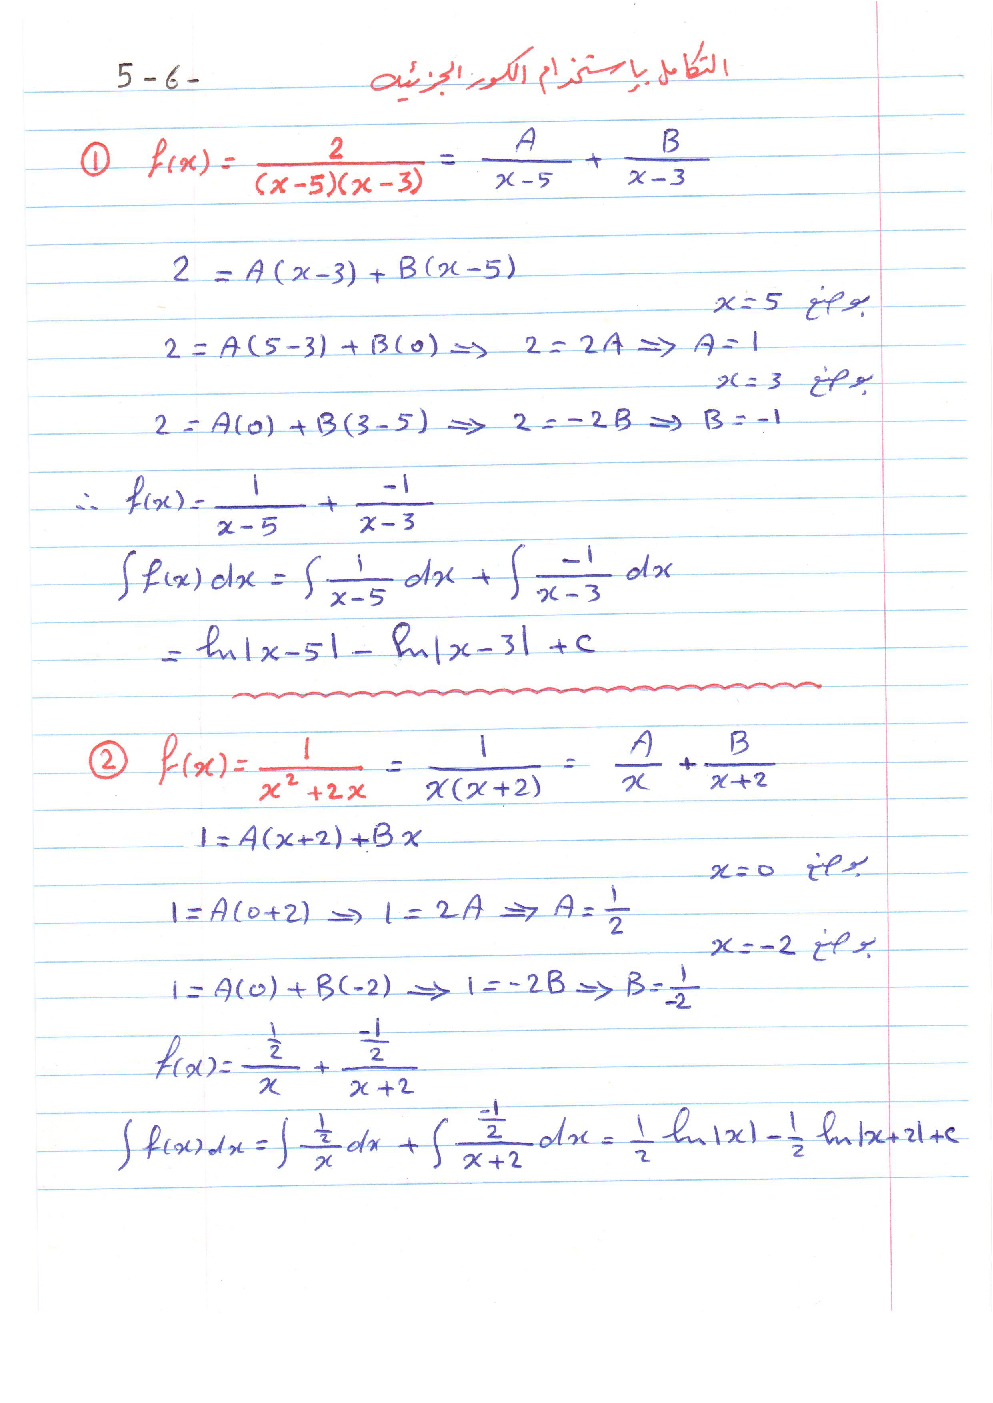 5-6- التكامل بإستخدام الكسور الجزئيه
① f(x) = 2/((x-5)(x-3)) = A/(x-5) + B/(x-3)
2 = A(x-3) + B(x-5)
بوضع x=5
2 = A(5-3) + B(0) ⇒ 2 = 2A ⇒ A = 1
بوضع x=3
2 = A(0) + B(3-5) ⇒ 2 = -2B ⇒ B = -1
∴ f(x) = 1/(x-5) + -1/(x-3)
∫ f(x) dx = ∫ 1/(x-5) dx + ∫ -1/(x-3) dx
= ln|x-5| - ln|x-3| + c
② f(x) = 1/(x²+2x) = 1/(x(x+2)) = A/x + B/(x+2)
1 = A(x+2) + Bx
بوضع x=0
1 = A(0+2) ⇒ 1 = 2A ⇒ A = 1/2
بوضع x=-2
1 = A(0) + B(-2) ⇒ 1 = -2B ⇒ B = 1/-2
f(x) = (1/2)/x + (-1/2)/(x+2)
∫ f(x) dx = ∫ (1/2)/x dx + ∫ (-1/2)/(x+2) dx = 1/2 ln|x| - 1/2 ln|x+2| + c